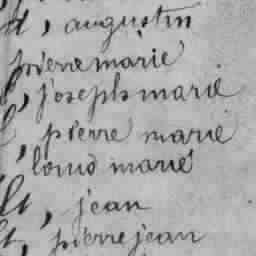 , augustin
pierre marie
, joseph marie
, pierre marie
, louis marie
lt, jean
t, pierre jean